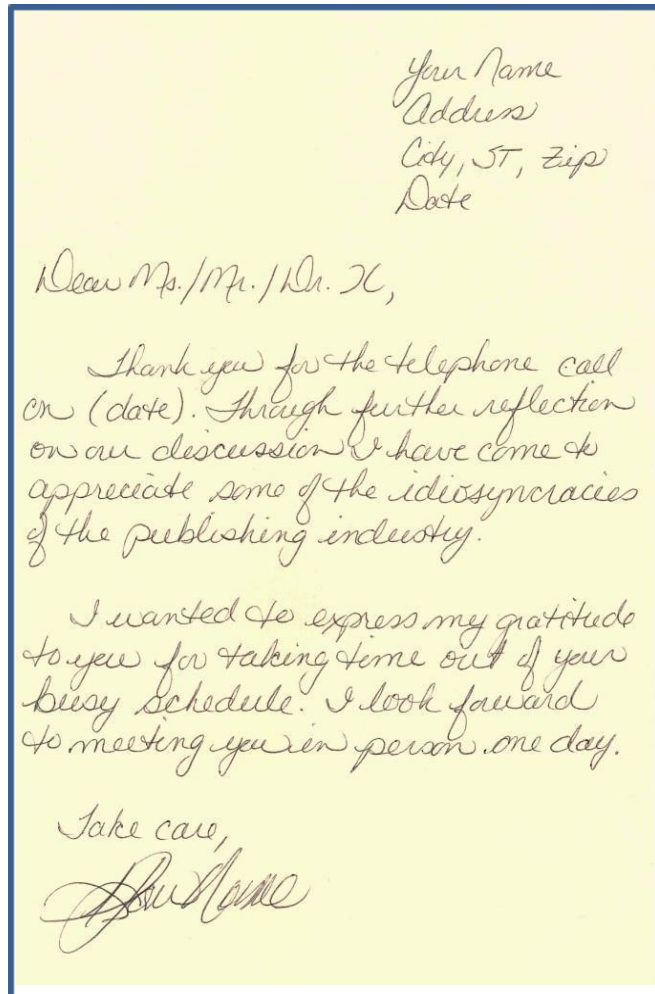 Your Name
Address
City, ST, Zip
Date
Dear Ms./Mr./Dr. X,
Thank you for the telephone call
on (date). Through further reflection
on our discussion I have come to
appreciate some of the idiosyncracies
of the publishing industry.
I wanted to express my gratitude
to you for taking time out of your
busy schedule. I look forward
to meeting you in person one day.
Take care,
Your Name